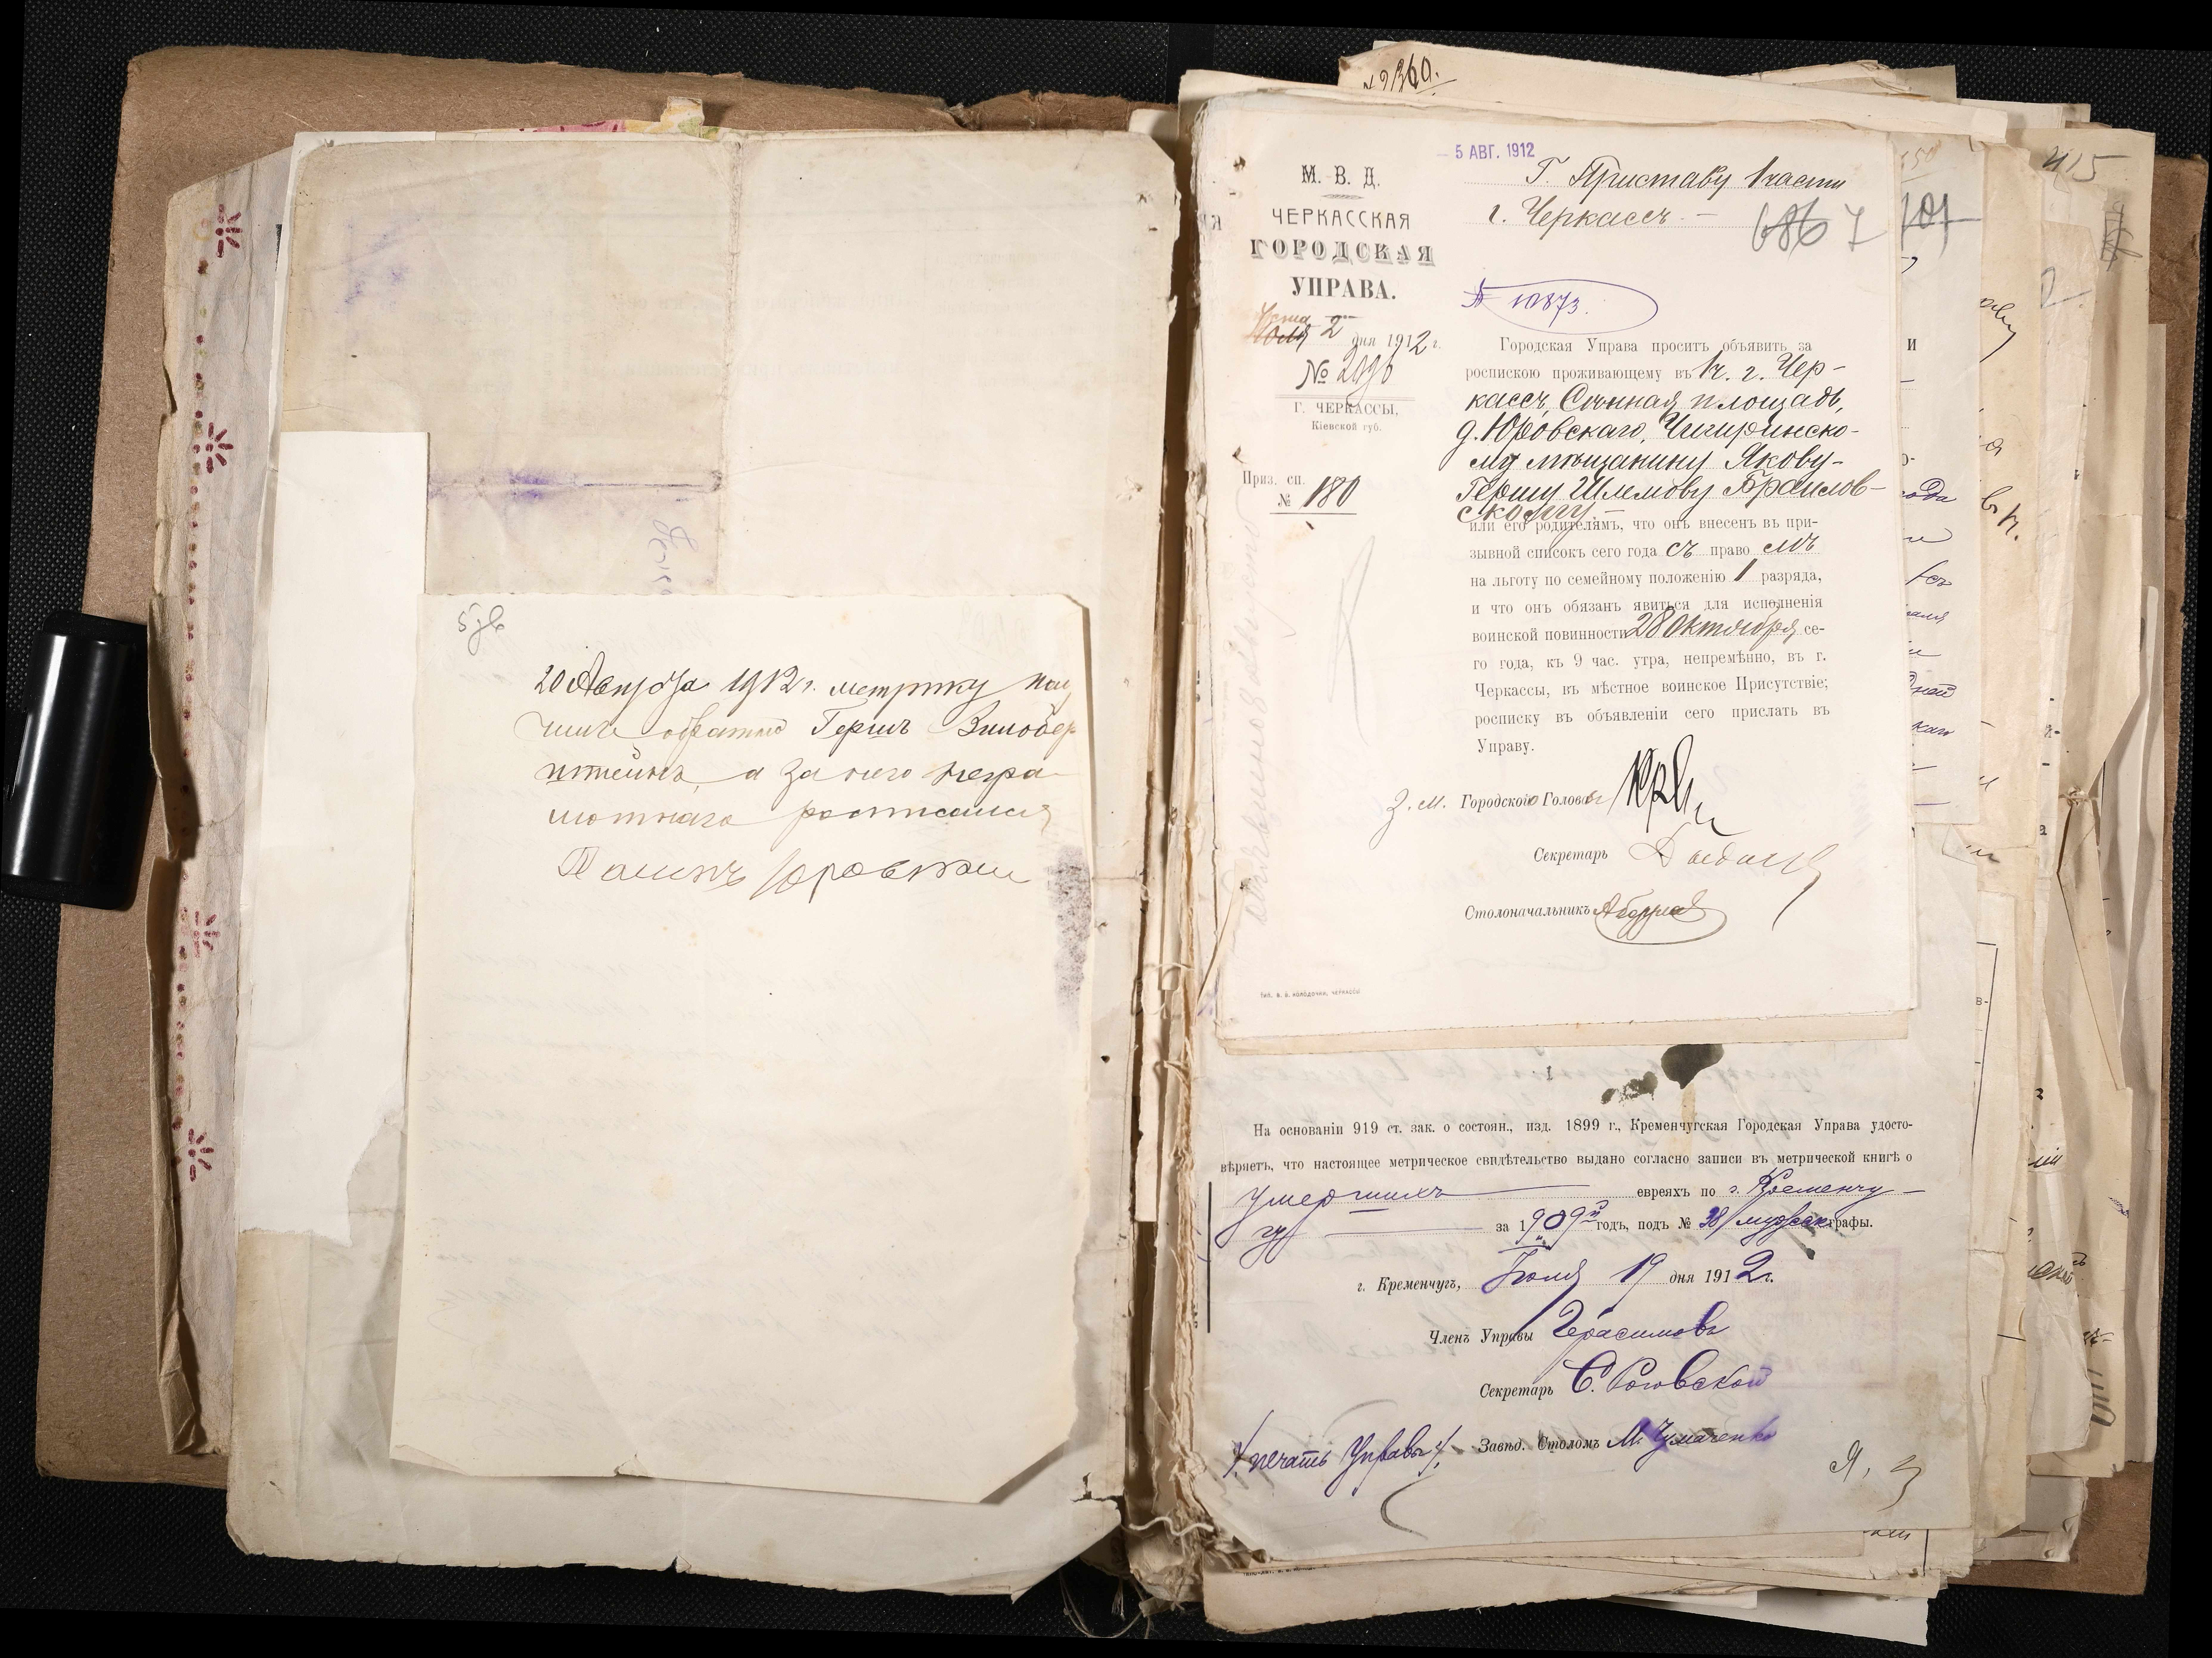 5 об
20 Августа 1912 г. метрику полу
чилъ обратно Гершъ Зильбер
штейнъ, а за него негра-
мотнаго росписался
Юровскій
№ 2360.
5 АВГ. 1912
М. В. Д.
ЧЕРКАССКАЯ
ГОРОДСКАЯ
УПРАВА.
2 дня 1912 г.
№
Г. ЧЕРКАССЫ,
Кіевской губ.
Приз. сп.
№ 180
Г. Приставу 1 части
г. Черкассъ. —
686 7
№ 10873.
Городская Управа проситъ объявить за
роспискою проживающему въ 1 ч. г. Чер-
кассъ, Сѣнная площадь,
д. Юровскаго, Чигиринско-
му мѣщанину Якову-
Гершу Шлемову Браилов-
скому —
или его родителямъ, что онъ внесенъ въ при-
зывной списокъ сего года съ право мъ
на льготу по семейному положенію 1 разряда,
и что онъ обязанъ явиться для исполненія
воинской повинности 28 Октября се-
го года, къ 9 час. утра, непремѣнно, въ г.
Черкассы, въ мѣстное воинское Присутствіе;
росписку въ объявленіи сего прислать въ
Управу.
З. М. Городского Головы
Секретарь
Столоначальникъ
На основаніи 919 ст. зак. о состоян., изд. 1899 г., Кременчугская Городская Управа удосто-
вѣряетъ, что настоящее метрическое свидѣтельство выдано согласно записи въ метрической книгѣ о
умершихъ евреяхъ по г. Кременчу-
гу за 1909 й годъ, подъ № 38 мужск. графы.
г. Кременчугъ, Іюля 19 дня 1912 г.
Членъ Управы Герасимовъ
Секретарь С. Роговской
Завѣд. Столомъ М. Чумаченко
/. печать Управы ./.
101
415